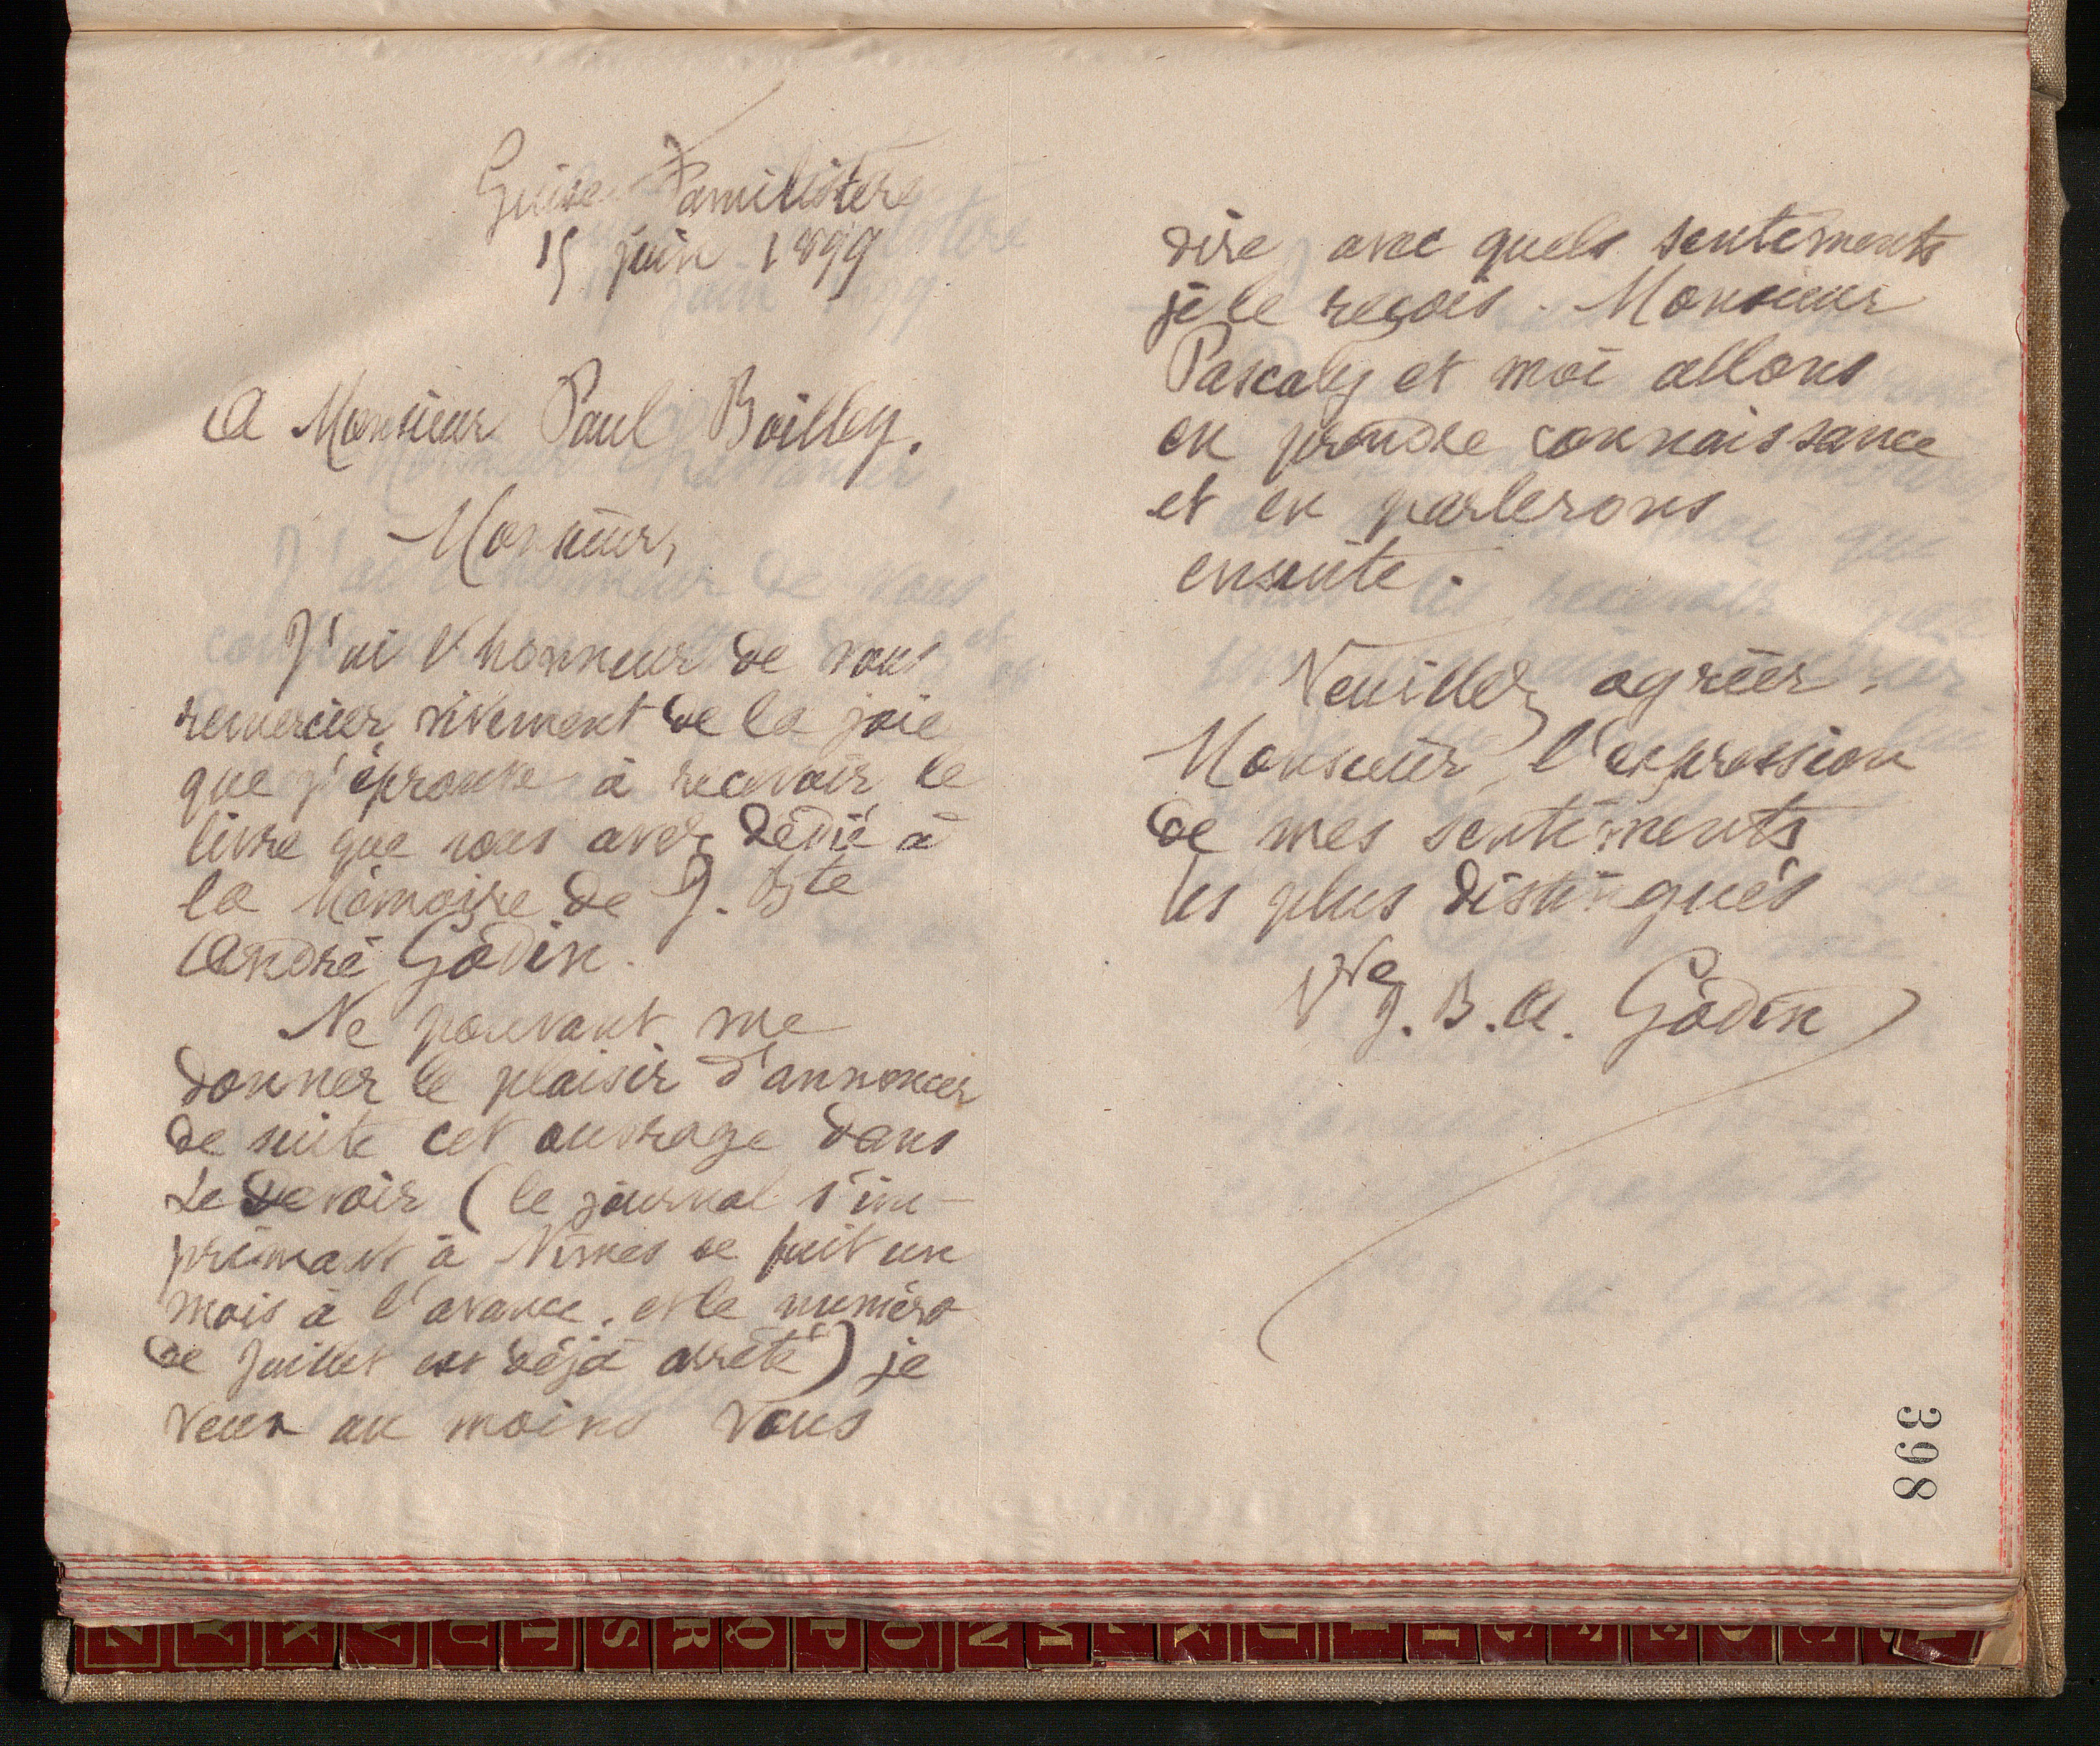 Guise Familistère
15 juin 1899
A Monsieur Paul Boilley.
Monsieur,
J'ai l'honneur de vous
remercier vivement de la joie
que j'éprouve à recevoir le
livre que vous avez dédié à
la Mémoire de J. Bte
André Godin.
Ne pouvant me
donner le plaisir d'annoncer
de suite cet ouvrage dans
Le Devoir (le journal s'im-
primant à Nîmes se fait un
mois à l'avance, et le numéro
de Juillet est déjà arrêté) je
veux au moins vous
dire avec quels sentiments
je le reçois. Monsieur
Pascaly et moi allons
en prendre connaissance
et en parlerons
ensuite.
Veuillez agréer,
Monsieur, l'expression
de mes sentiments
les plus distingués
Vve J. B. A. Godin
398
Z Y X V U T S R Q P O N M L K J I H G F E D C